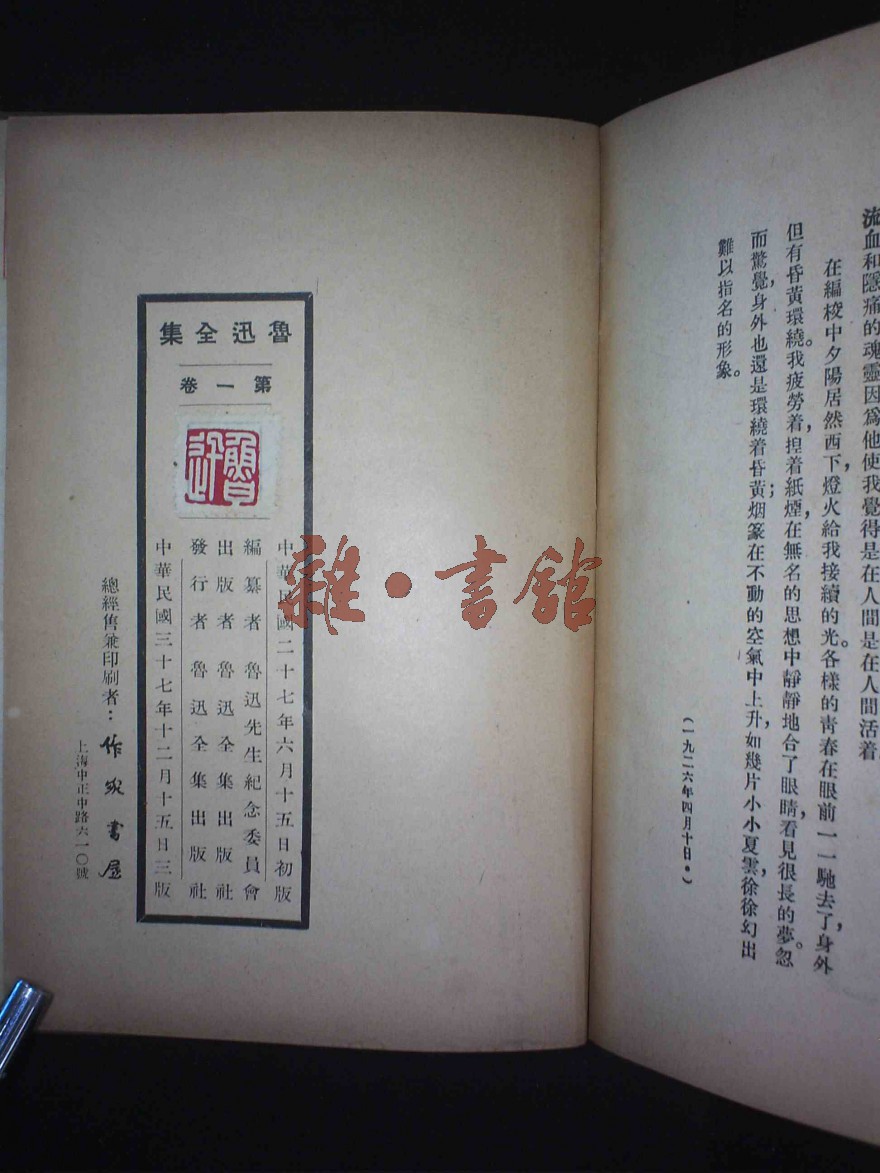 流血和隱痛的魂靈，因爲他使我覺得是在人間，是在人間活着。
在編校中夕陽居然西下，燈火給我接續的光。各樣的青春在眼前一一馳去了，身外
但有昏黃環繞。我疲勞着，捏着紙煙，在無名的思想中靜靜地合了眼睛，看見很長的夢。忽
而驚覺，身外也還是環繞着昏黃；烟篆在不動的空氣中上升，如幾片小小夏雲，徐徐幻出
難以指名的形象。
（一九二六年四月十日。）
魯迅全集
第一卷
魯迅
中華民國二十七年六月十五日初版
編纂者 魯迅先生紀念委員會
出版者 魯迅全集出版社
發行者 魯迅全集出版社
中華民國三十七年十二月十五日三版
總經售兼印刷者：作家書屋
上海中正中路六一〇號
雜·書館